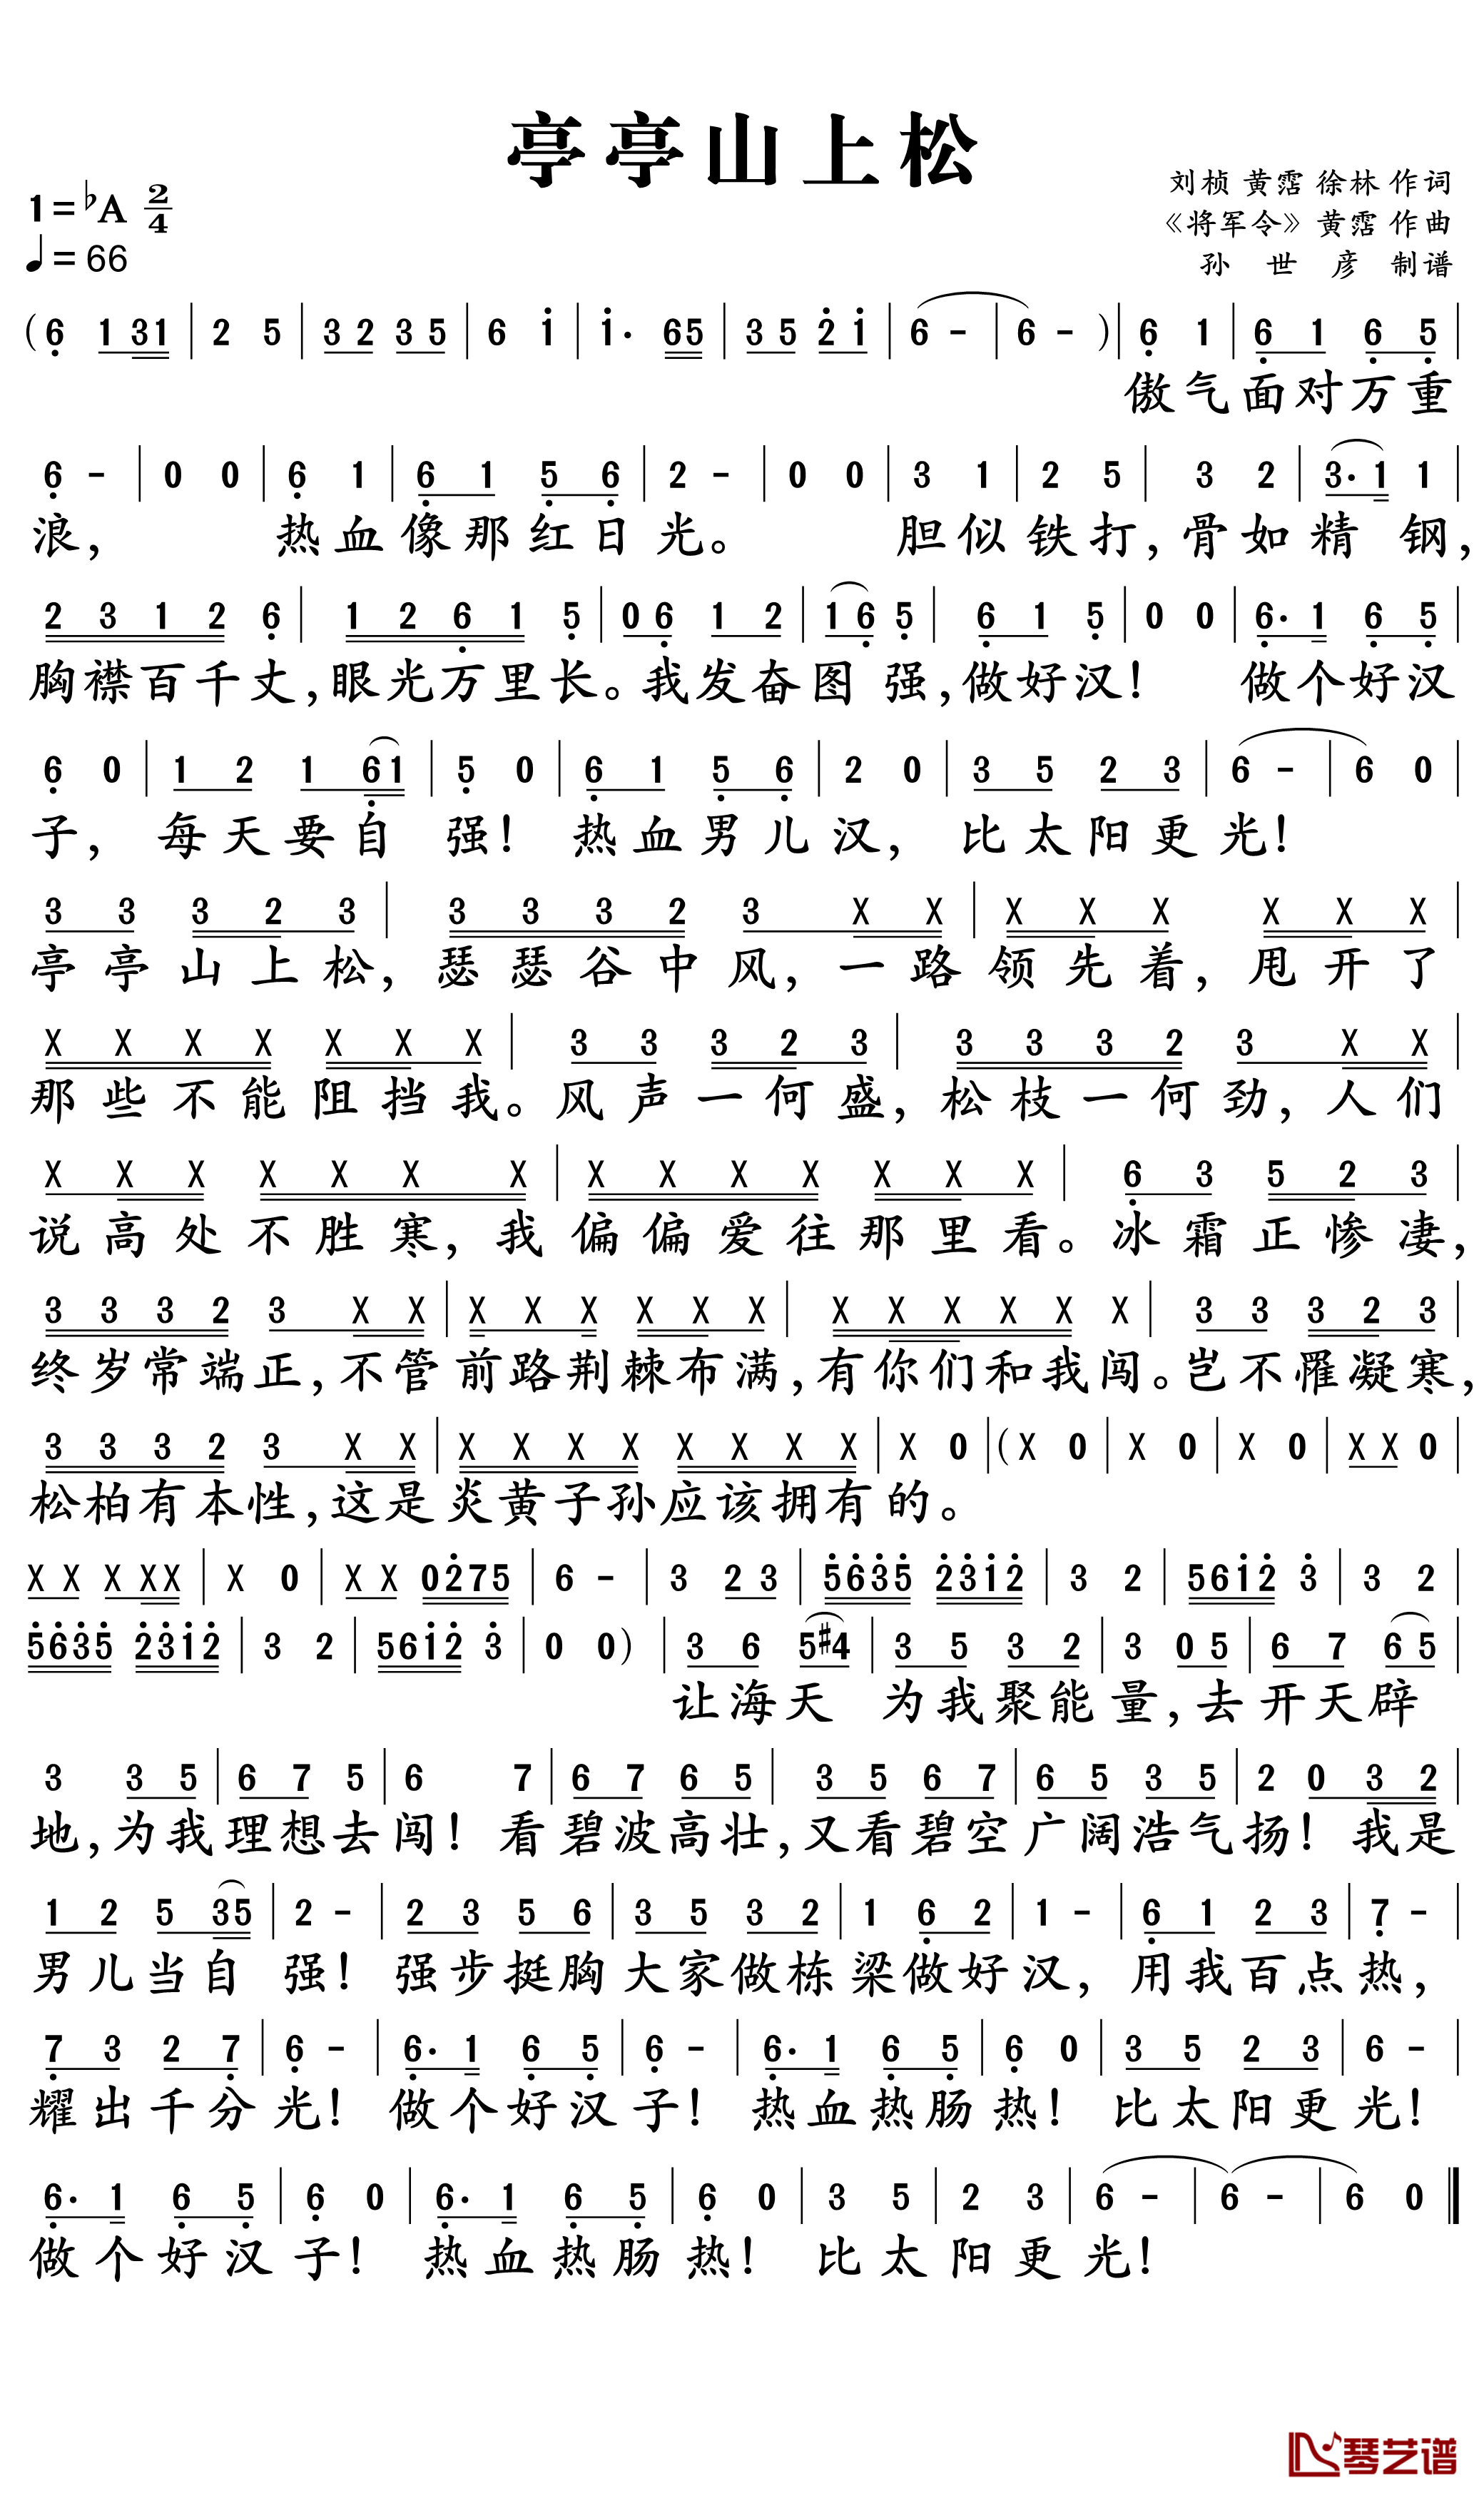 亭亭山上松
1=♭A 2/4
♩=66
刘桢 黄霑 徐林 作词
《将军令》 黄霑 作曲
孙 世 彦 制谱
(6̣ 1 31 | 2 5 | 3 2 3 5 | 6 i | i· 65 | 3 5 2̇ i | 6 - | 6 - ) | 6̣ 1 | 6̣ 1 6̣ 5̣ |
傲气面对万重
6̣ - | 0 0 | 6̣ 1 | 6̣ 1 5̣ 6̣ | 2 - | 0 0 | 3 1 | 2 5 | 3 2 | 3· 1 1 |
浪, 热血像那红日光。 胆似铁打,骨如精 钢,
2 3 1 2 6̣ | 1 2 6̣ 1 5̣ | 0 6̣ 1 2 | 1 6̣ 5̣ | 6̣ 1 5̣ | 0 0 | 6̣· 1 6̣ 5̣ |
胸襟百千丈,眼光万里长。我发奋图强,做好汉! 做个好汉
6̣ 0 | 1 2 1 6̣1 | 5̣ 0 | 6̣ 1 5̣ 6̣ | 2 0 | 3 5 2 3 | 6 - | 6 0 |
子, 每天要自 强! 热血男儿汉, 比太阳更光!
3 3 3 2 3 | 3 3 3 2 3 X X | X X X X X X |
亭亭山上松,瑟瑟谷中风,一路领先着,甩开了
X X X X X X X | 3 3 3 2 3 | 3 3 3 2 3 X X |
那些不能阻挡我。风声一何盛,松枝一何劲,人们
X X X X X X X | X X X X X X X | 6̣ 3 5 2 3 |
说高处不胜寒,我偏偏爱往那里看。冰霜正惨凄,
3 3 3 2 3 X X | X X X X X X | X X X X X X | 3 3 3 2 3 |
终岁常端正,不管前路荆棘布满,有你们和我闯。岂不罹凝寒,
3 3 3 2 3 X X | X X X X X X X X | X 0 | (X 0 | X 0 | X 0 | X X 0 |
松柏有本性,这是炎黄子孙应该拥有的。
X X X XX | X 0 | X X 02̇75 | 6 - | 3 2 3 | 5̇6̇3̇5̇ 2̇3̇1̇2̇ | 3 2 | 561̇2̇ 3̇ | 3 2 |
5̇6̇3̇5̇ 2̇3̇1̇2̇ | 3 2 | 561̇2̇ 3̇ | 0 0) | 3 6 5#4 | 3 5 3 2 | 3 0 5 | 6 7 6 5 |
让海天 为我聚能量,去开天辟
3 3 5 | 6 7 5 | 6 7 | 6 7 6 5 | 3 5 6 7 | 6 5 3 5 | 2 0 3 2 |
地,为我理想去闯!看碧波高壮,又看碧空广阔浩气扬!我是
1 2 5 35 | 2 - | 2 3 5 6 | 3 5 3 2 | 1 6̣ 2 | 1 - | 6̣ 1 2 3 | 7̣ - |
男儿当自 强! 强步挺胸大家做栋梁做好汉, 用我百点热,
7̣ 3 2 7̣ | 6̣ - | 6̣· 1 6̣ 5̣ | 6̣ - | 6̣· 1 6̣ 5̣ | 6̣ 0 | 3 5 2 3 | 6 - |
耀出千分光! 做个好汉子! 热血热肠热! 比太阳更光!
6̣· 1 6̣ 5̣ | 6̣ 0 | 6̣· 1 6̣ 5̣ | 6̣ 0 | 3 5 | 2 3 | 6 - | 6 - | 6 0 ‖
做个好汉子! 热血热肠热! 比太阳更光!
琴艺谱